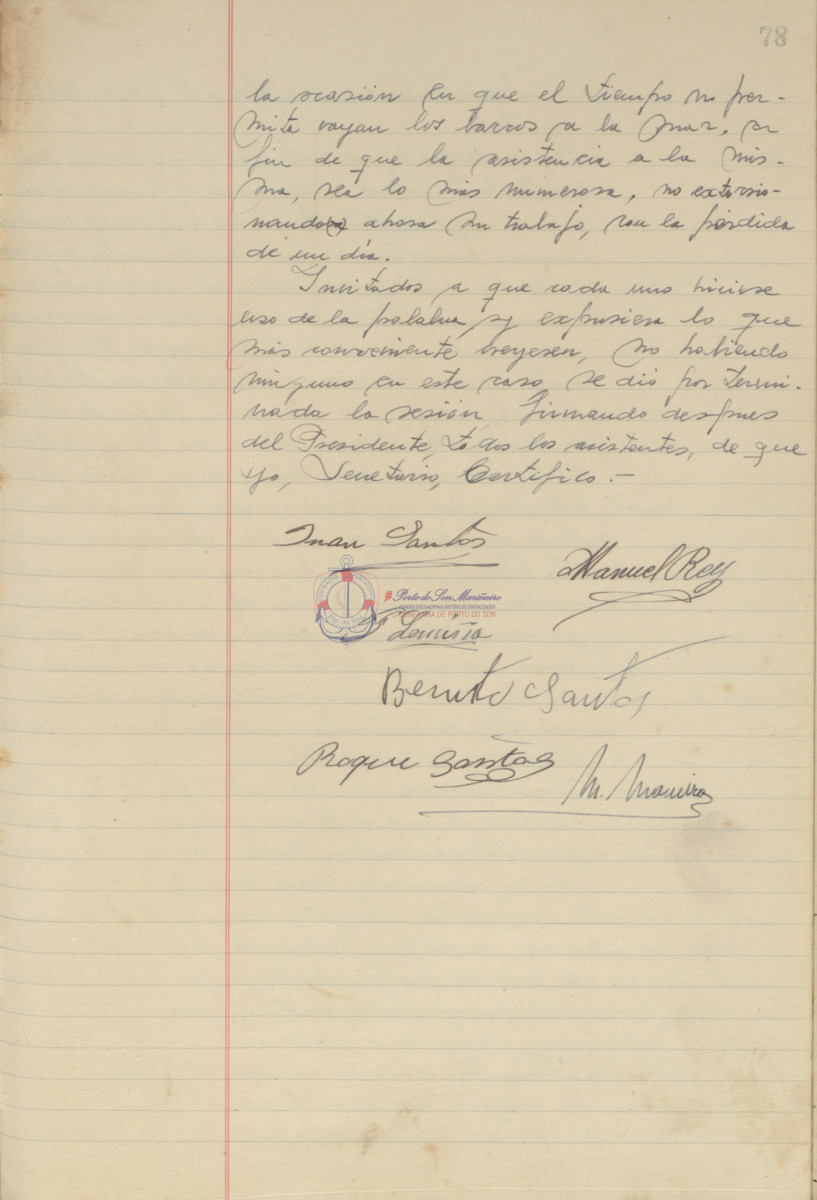 78
la ocasión en que el tiempo no per-
mita vayan los barcos a la mar, a
fin de que la asistencia a la mis-
ma, sea lo más numerosa, no extorsio-
nando ahora su trabajo, con la pérdida
de un día.
Invitados a que cada uno hiciese
uso de la palabra y expusiera lo que
más conveniente creyesen, no habiendo
ninguno en este caso, se dió por termi-
nada la sesión firmando despues
del Presidente, todos los asistentes, de que
yo, Secretario, Certifico.-
Juan Santos
Manuel Rey
Porto do Son Mariñeiro
FONDOS DOCUMENTAIS HISTÓRICOS DIXITALIZADOS
CONFRARÍA DE PORTO DO SON
Benito Santos
Roque Santos
M. Maneiro